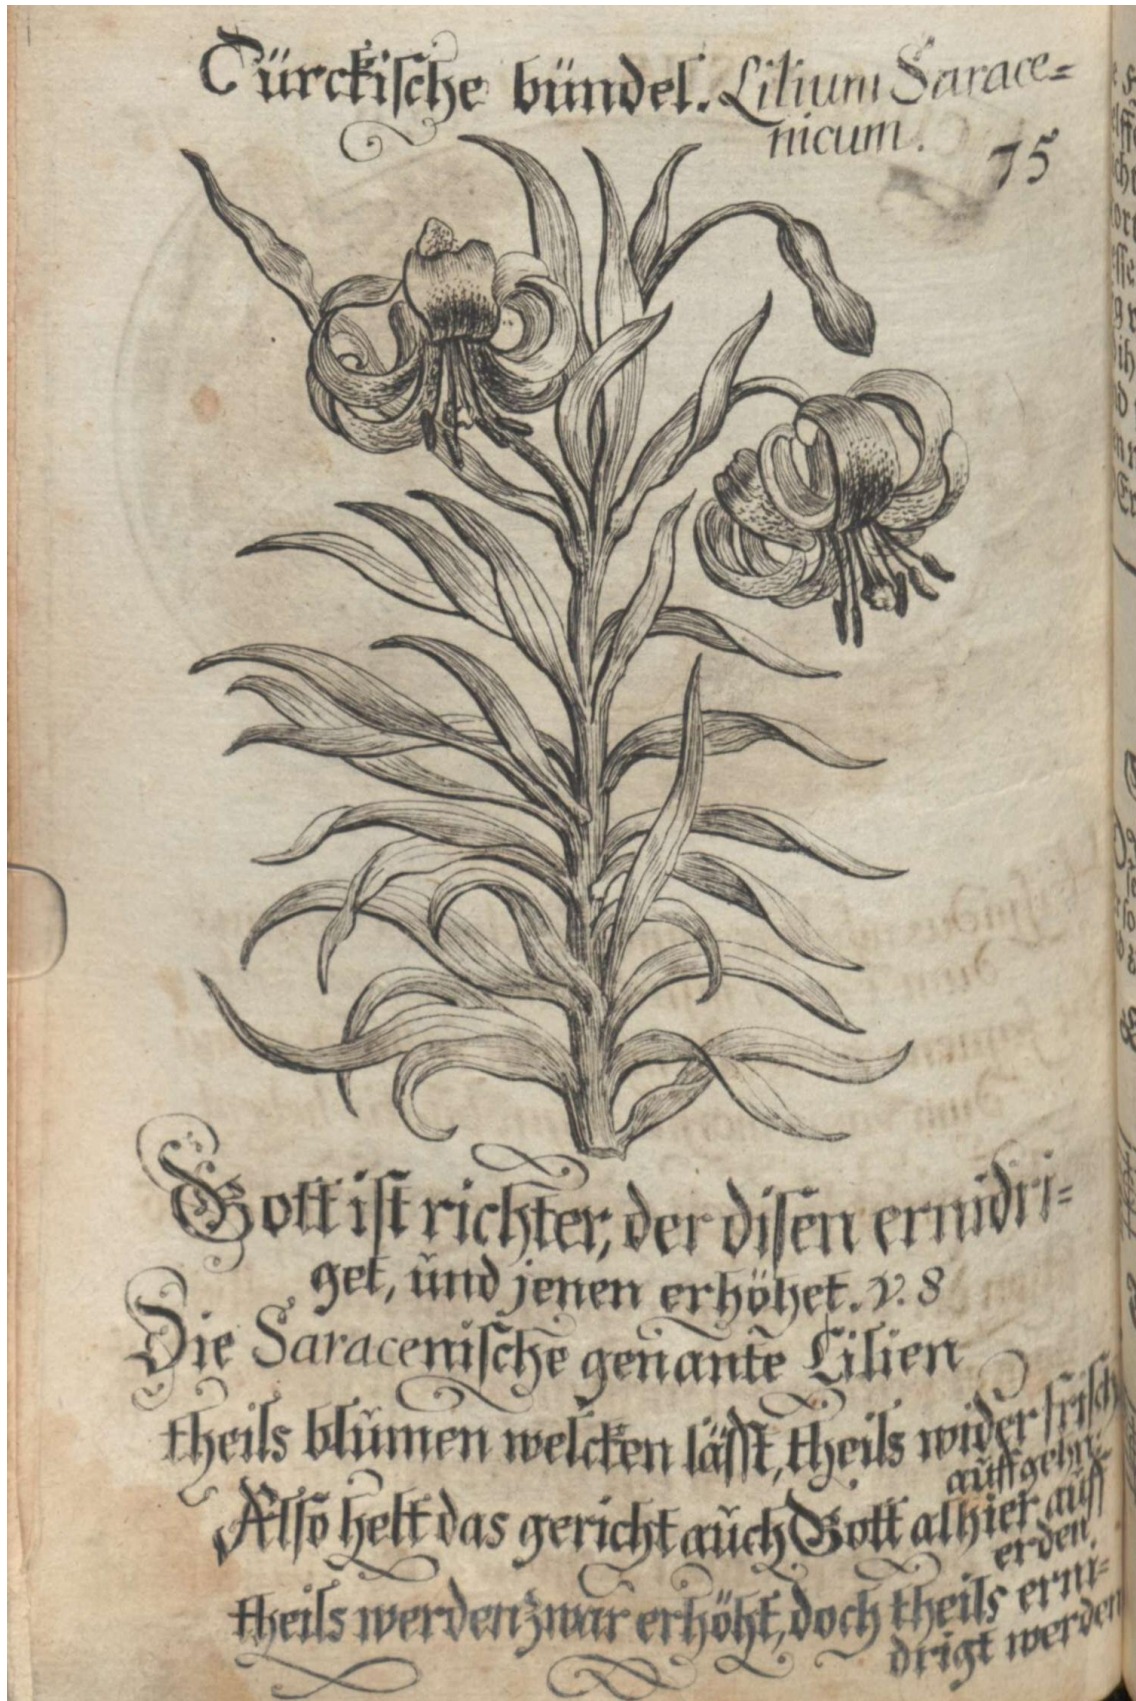 Türckische bündel. Lilium Sarace=
nicum.
75
Gott ist richter, der disen ernidri=
get, und jenen erhöhet. v. 8
Die Saracenische genante Lilien
theils blumen welcken lässt, theils wider frisch
auffgehn:
Also helt das gericht auch Gott alhier auff
erden,
theils werden zwar erhöht, doch theils erni=
drigt werden